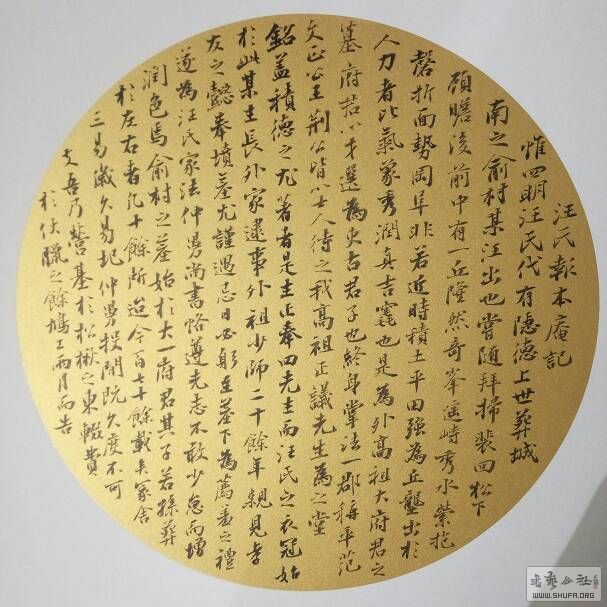 汪氏報本庵記
惟四明汪氏代有隱德上世葬城
南之俞村某汪出也嘗隨拜掃裴回松下
顧瞻後前中有一丘隆然奇峯遙峙秀水縈抱
磬折面勢岡阜非若近時積土平田強為丘壟出於
人力者比氣象秀潤真吉竁也是為外高祖大府君之
墓府君以才選為吏古君子也終身掌法一郡稱平范
文正公王荊公皆以士人待之我高祖正議先生為之堂
銘蓋積德之尤著者是生正奉四先生而汪氏之衣冠始
於此某生長外家逮事外祖少師二十餘年親見孝
友之懿奉墳墓尤謹遇忌日必躬至墓下為薦羞之禮
遂為汪氏家法仲舅尚書恪遵先志不敢少怠而增
潤色焉俞村之墓始於大一府君其子若孫葬
於左右者凡十餘所迨今百七十餘載矣冢舍
三易歲久易圮仲舅投閒既久度不可
支吾乃營基於松楸之東輟費
於伏臘之餘鳩工兩月而告
WWW.SHUFA.ORG